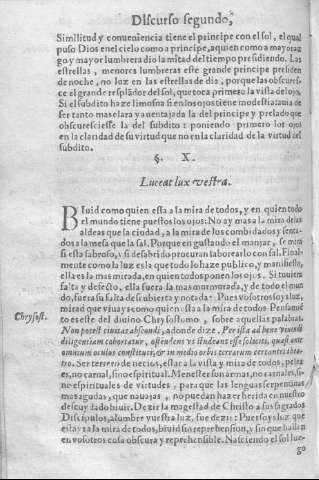 Discurso segundo,
Similitud y conueniencia tiene el principe con el sol, el qual
puso Dios en el cielo como a principe, a quien como a mayoraz
go y mayor lumbrera dio la mitad del tiempo presidiendo. Las
estrellas, menores lumbreras este grande principe presiden
de noche, no luz en las estrellas de dia, porque las obscures-
ce el grande resplãdor del sol, que toca primero la vista de los ojos.
Si el subdito haze limosna si en los ojos tiene modestia auia de
ser tanto mas clara y auentajada la del principe y prelado que
obscuresciesse la del subdito: poniendo primero los ojos
en la claridad de su virtud que no en la claridad de la virtud del
subdito.
§. X.
Luceat lux vestra.
Biuid como quien esta a la mira de todos, y en quien todo
el mundo tiene puestos los ojos: No ay mas a la mira de las
aldeas que la ciudad, a la mira de los combidados y senta-
dos a la mesa que la sal. Porque en gustando el manjar, se mira
si esta sabroso, y si desabrido procuran laborearlo con sal. Final-
mente como la luz es la que todo lo haze publico, y manifiesto,
ella es la mas mirada, en quien todos ponen los ojos. Si tuuiera
falta y defecto, ella fuera la mas murmurada, y de todo el mun
do, fuera su falta descubierta y notada: Pues vosotros soys luz,
mirad que viuis y como quien esta a la mira de todos Pensamiẽ
to es este del diuino Chrysostomo, sobre aquellas palabras.
Chrysost.
Non potest ciuitas abscondi, adonde dize. Per ista ad bene viuendi
diligentiam cohortatur, ostendens vt studeant esse soliciti, quasi ante
omnium oculos constituti, & in medio orbis terrarum certantes thea-
tro. Ser terrero de necios, estar a la vista y mira de todos, peleá
es, no carnal, sino espiritual. Menester son armas, no carnales, si-
no espirituales de virtudes, para que las lenguas serpentinas
mas agudas, que nauajas, no puedan hazer herida en nuestro
descuydado biuir. Dezir la magestad de Christo a sus sagrados
Discipulos, alumbre vuestra luz, fue dezir: Pues soys luz que
estays a la mira de todos, biuid sin reprehension, y sin que hallen
en vosotros cosa obscura y reprehensible. Nasciendo el sol lue-
go